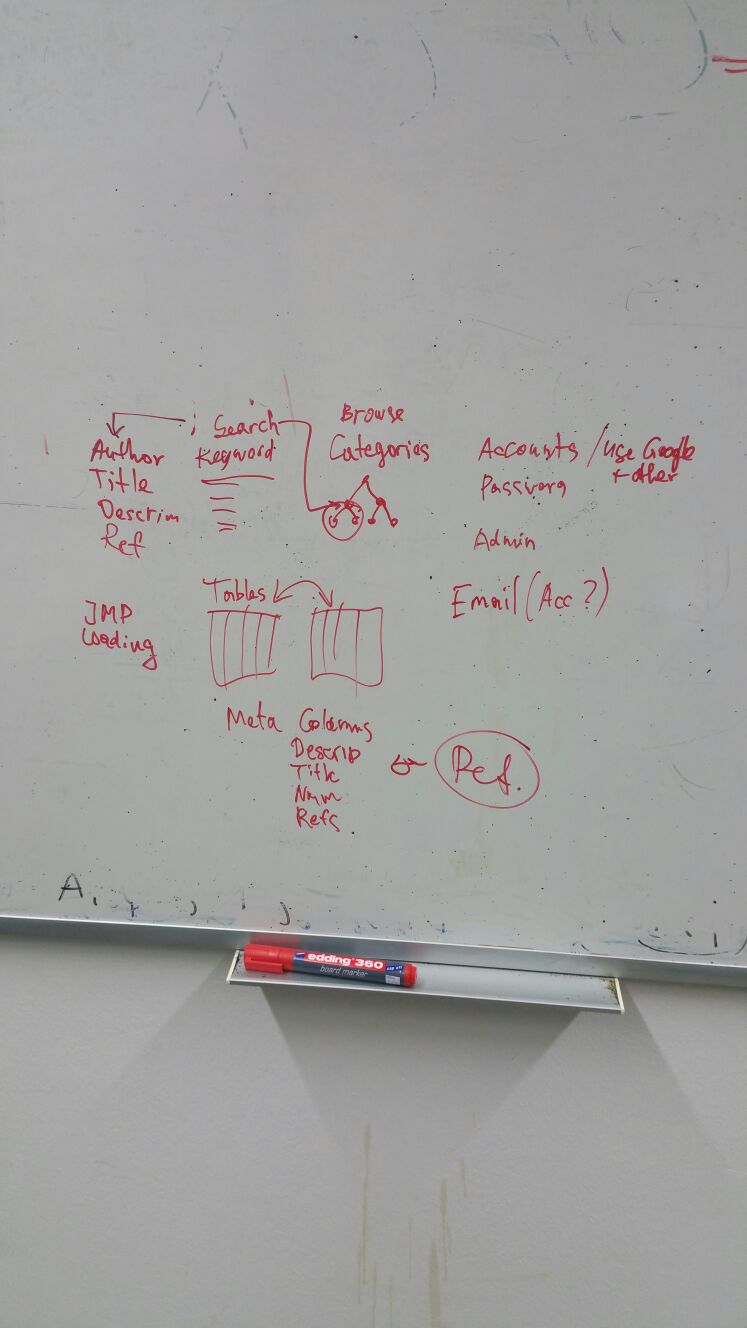 Search
Keyword
Author
Title
Descrim
Ref
Browse
Categories
Accounts / Use Google
+ other
Password
Admin
Email (Acc ?)
JMP
Loading
Tables
Meta Columns
Descrip
Title
Num
Refs
Ref.
A
edding 360
board marker